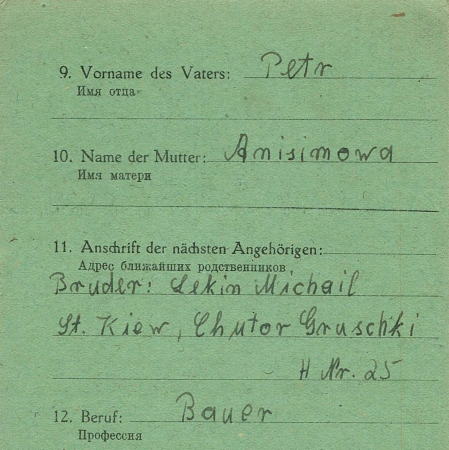 9. Vorname des Vaters: Petr
Имя отца
10. Name der Mutter: Anisimowa
Имя матери
11. Anschrift der nächsten Angehörigen:
Адрес ближайших родственников,
Bruder: Lekin Michail
St. Kiew, Chutor Gruschki
H Nr. 25
12. Beruf: Bauer
Профессия